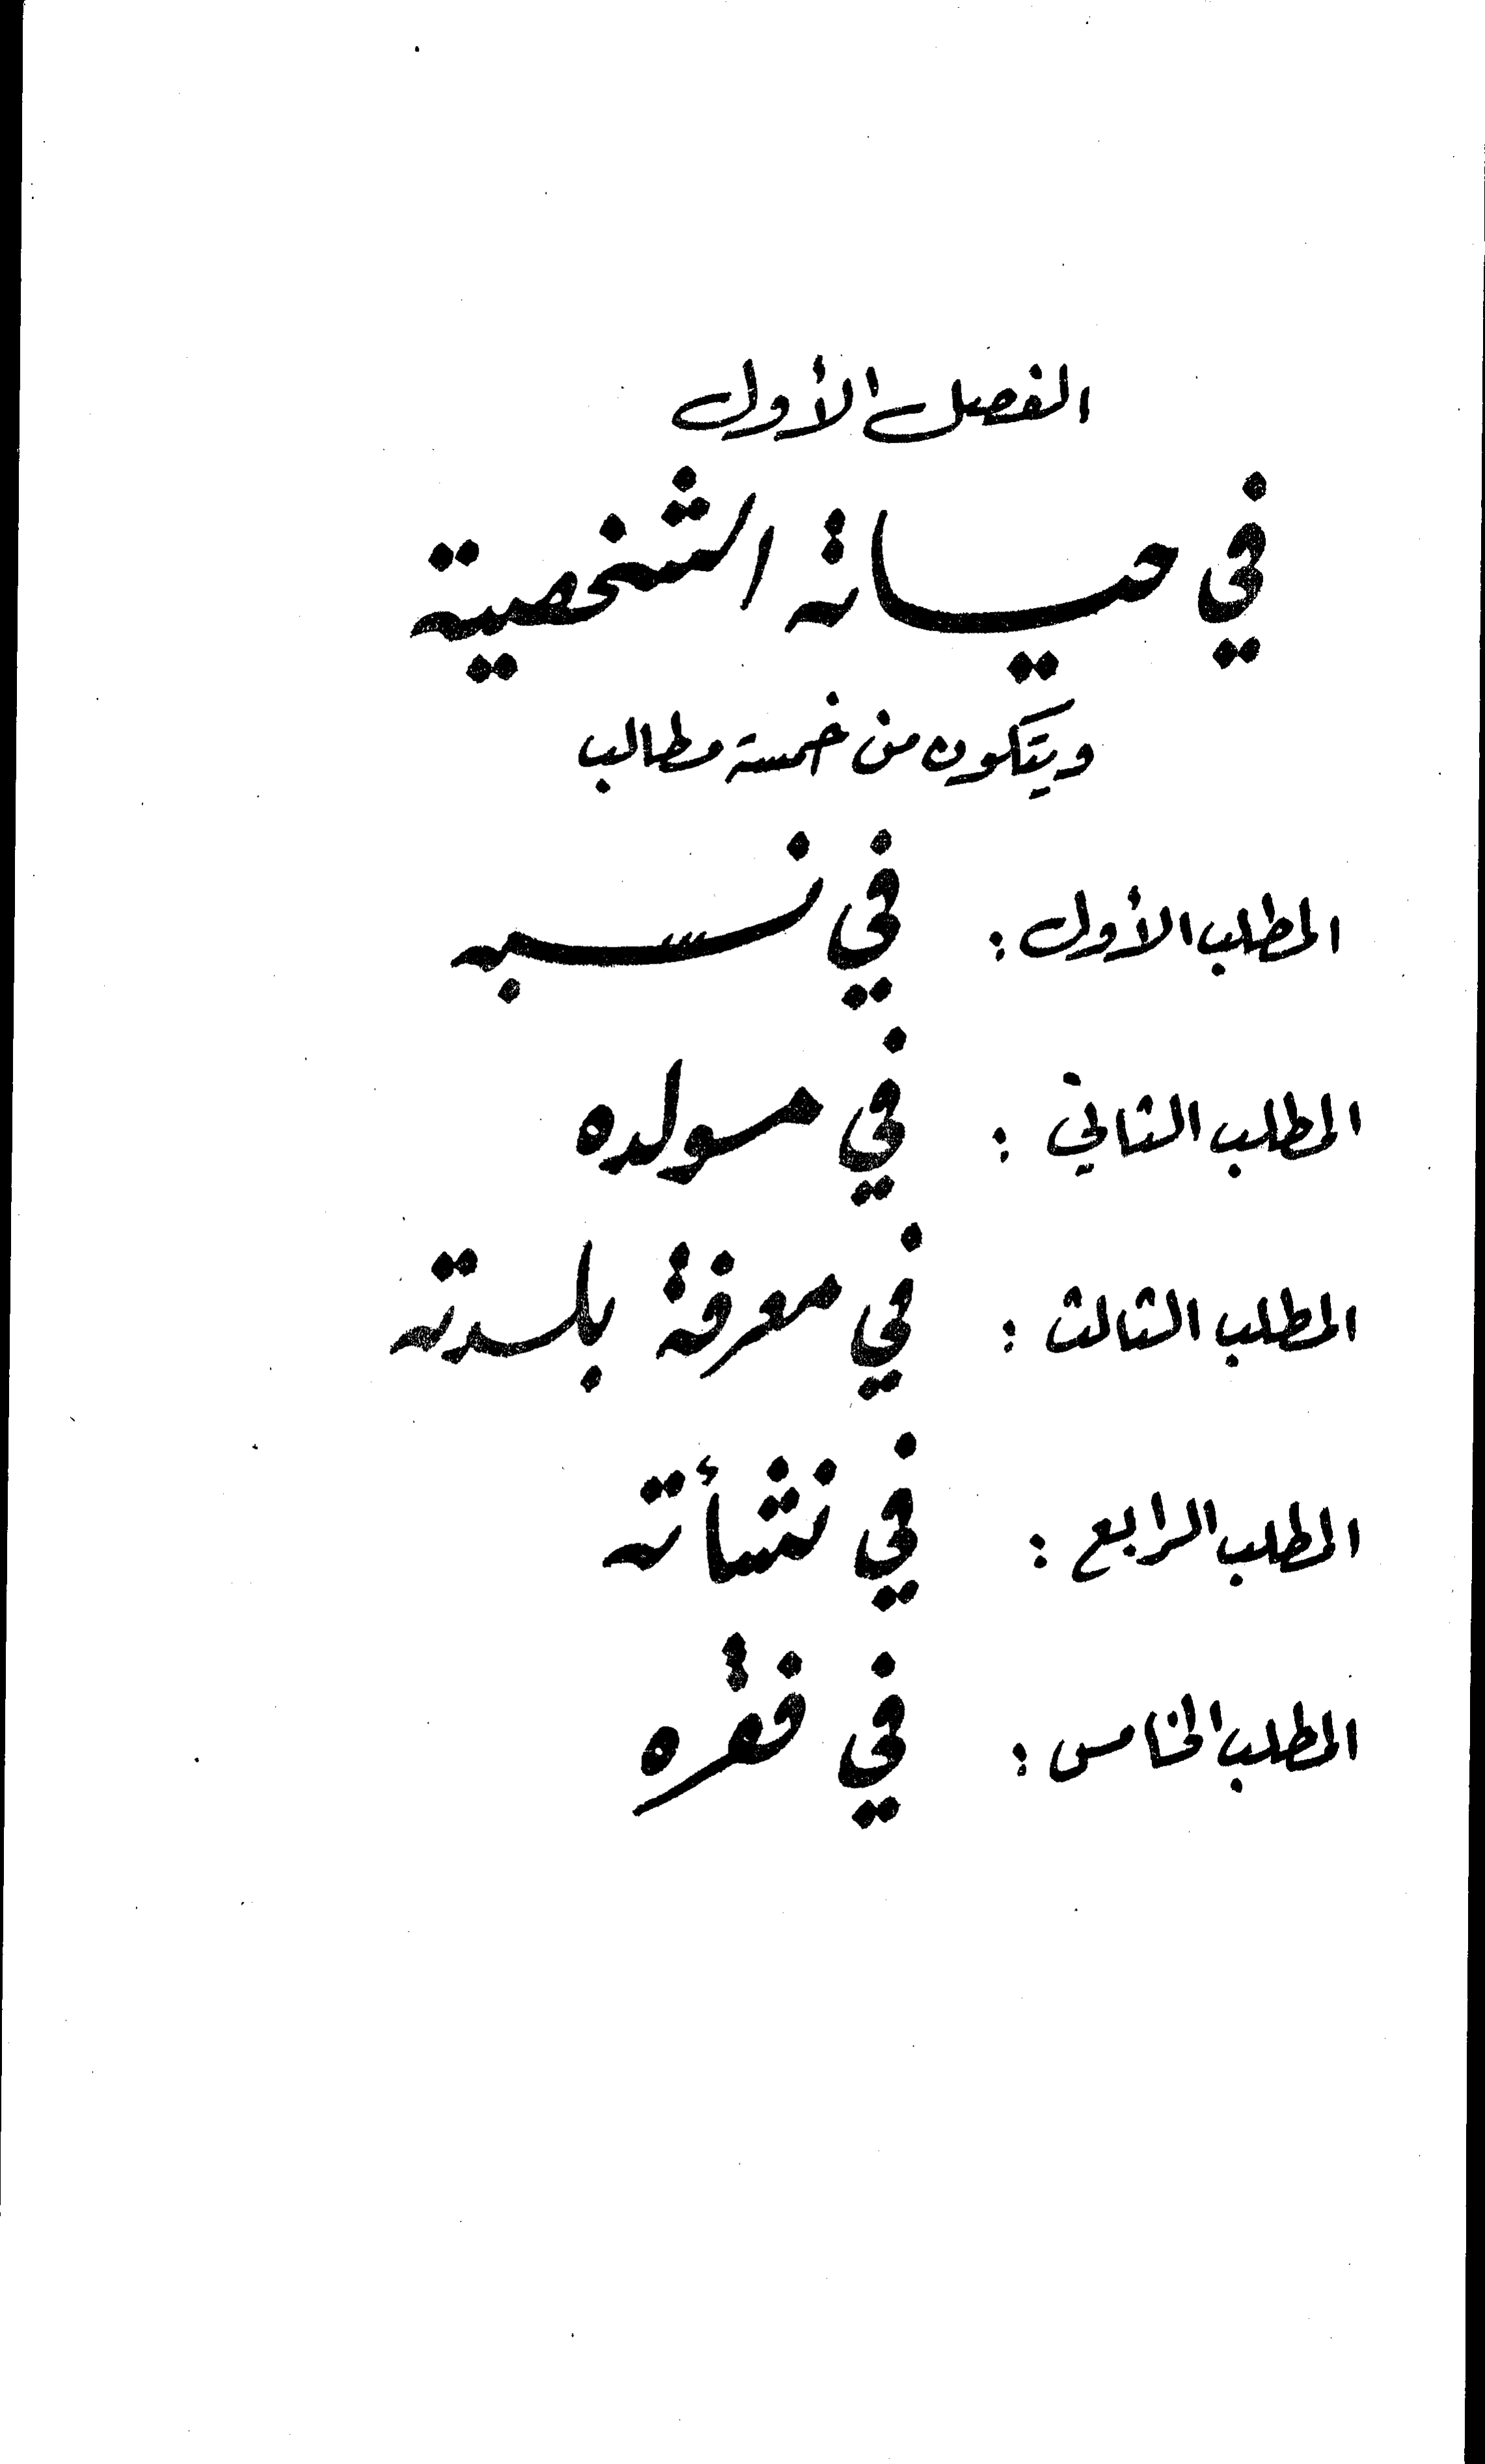 الفصل الأول
في حياته الشخصية
ويتكون من خمسة مطالب
المطلب الأول : في نسبه
المطلب الثاني : في مولده
المطلب الثالث : في معرفة بلدته
المطلب الرابع : في نشأته
المطلب الخامس : في فقره